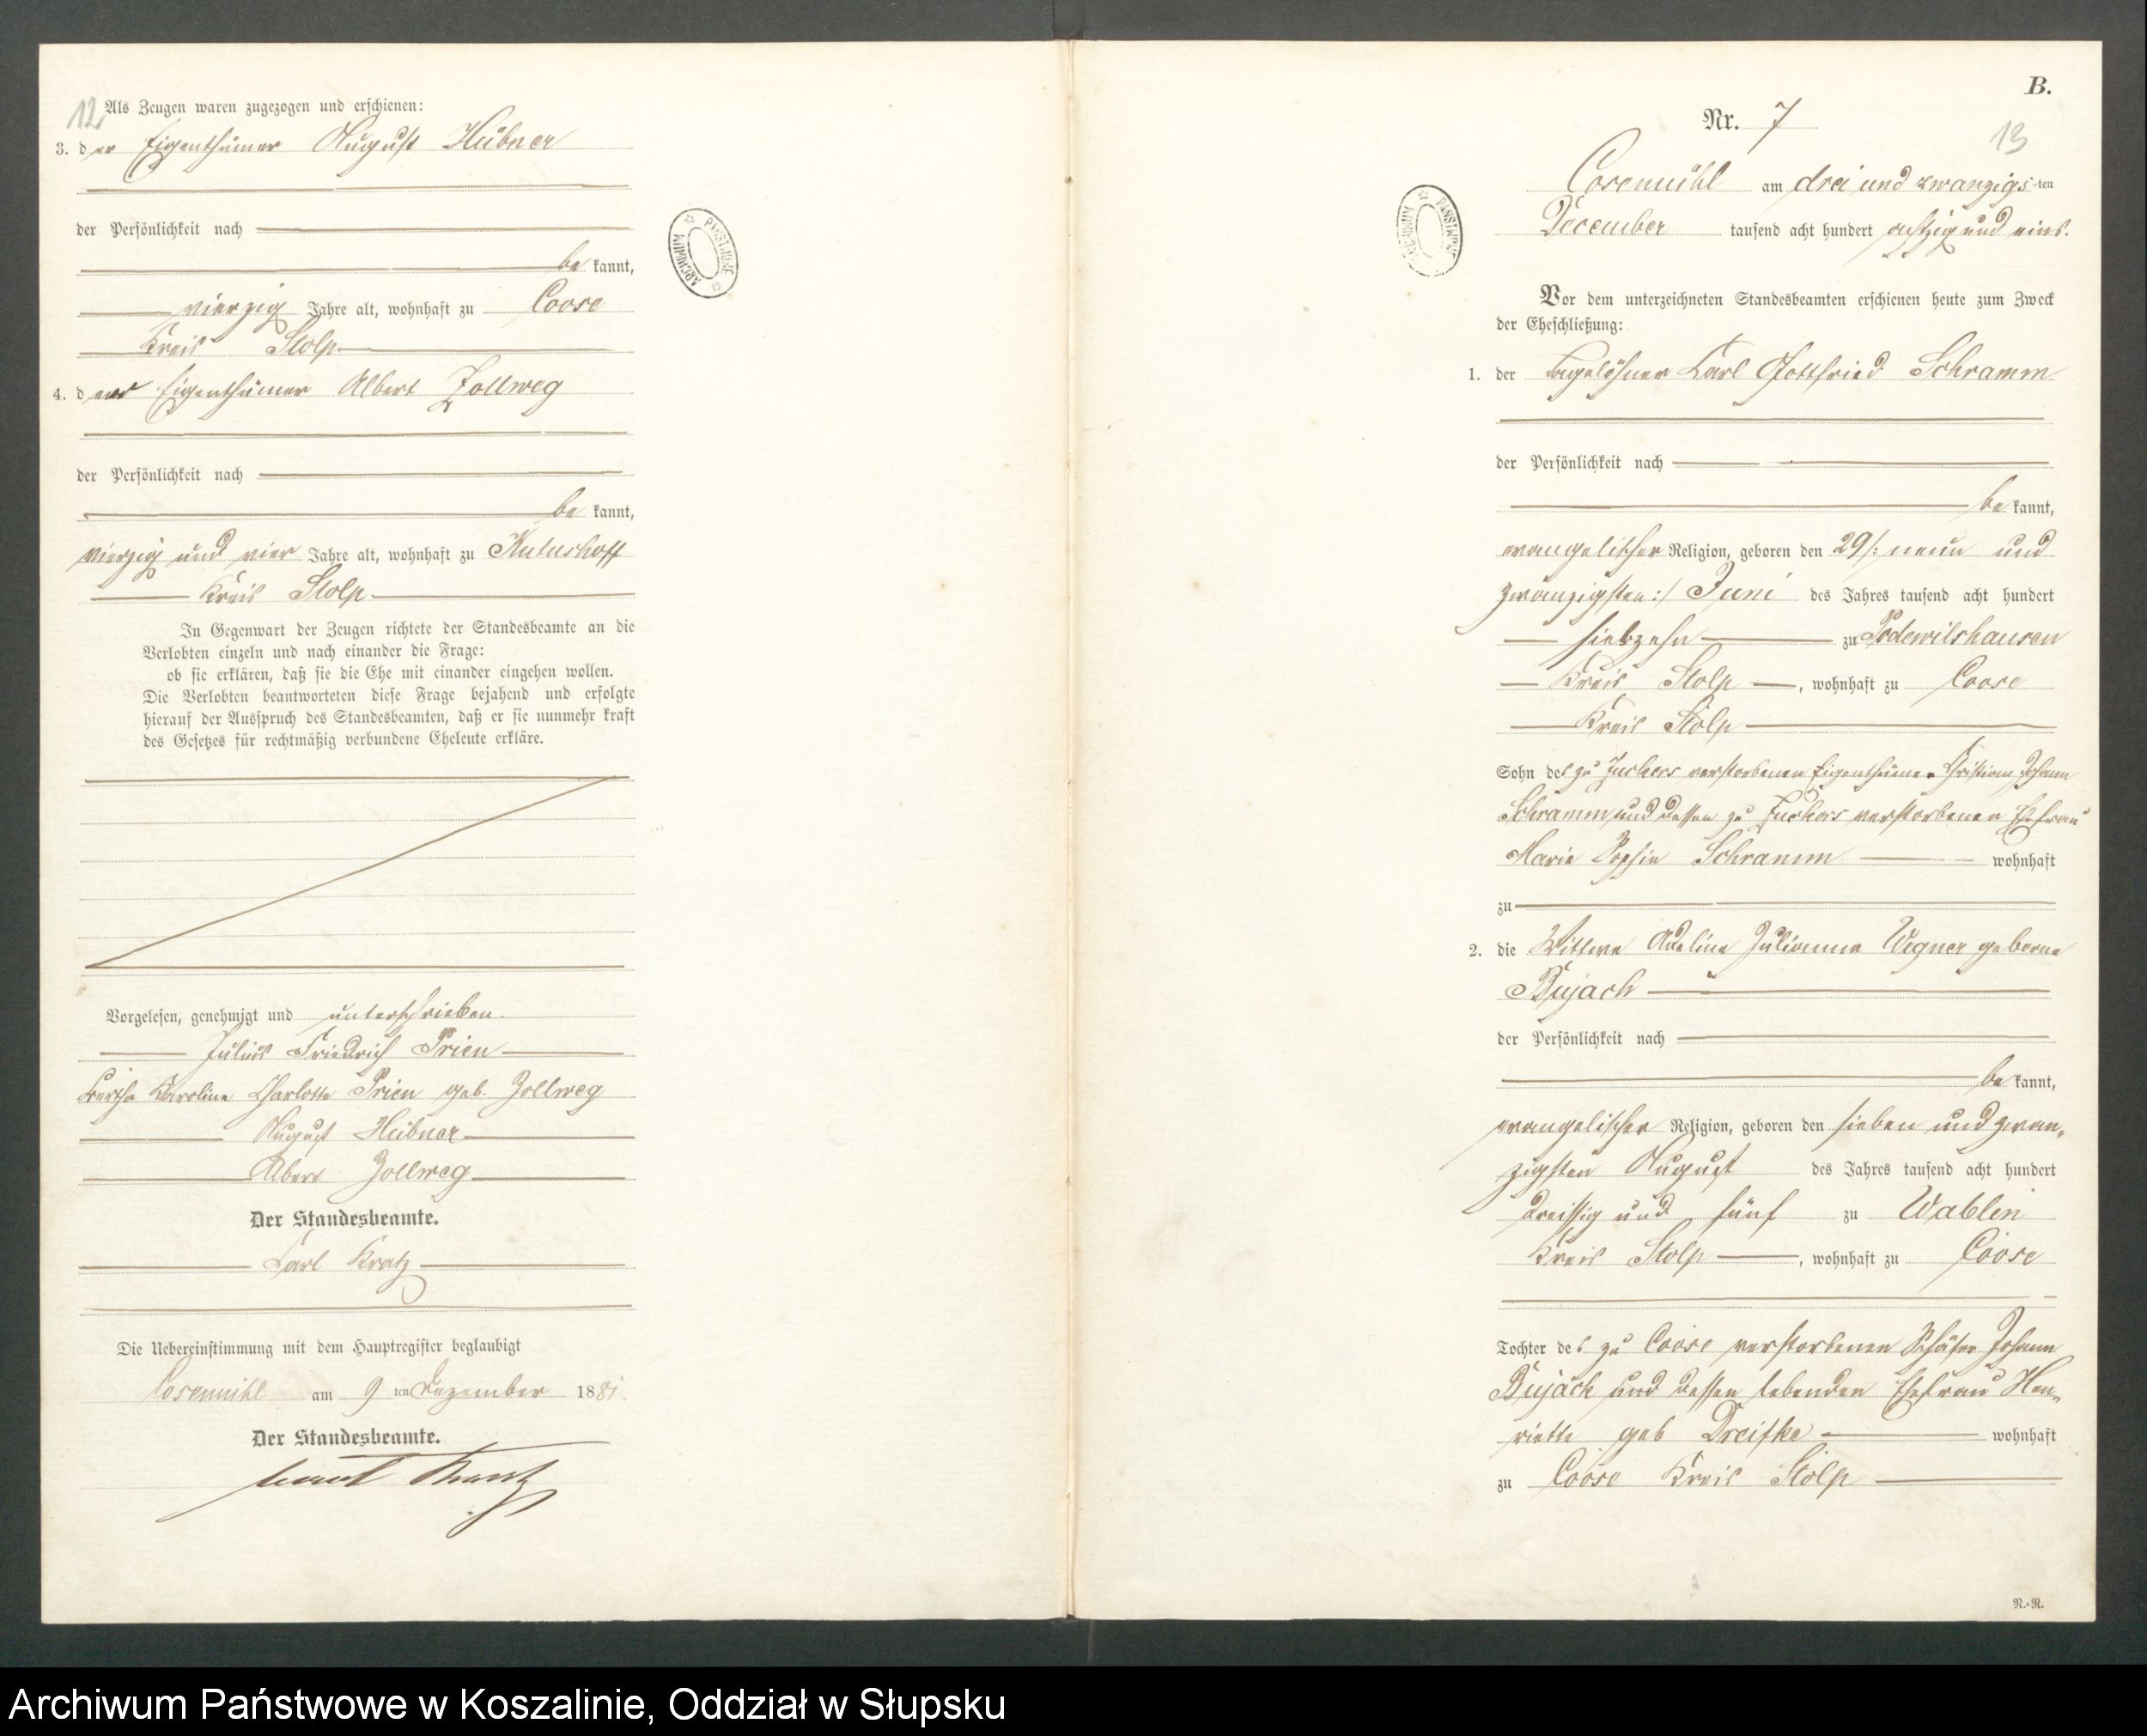 12
Als Zeugen waren zugezogen und erschienen:
3. der Eigenthümer August Hübner
der Persönlichkeit nach
bekannt,
vierzig Jahre alt, wohnhaft zu Coose
Kreis Stolp
4. der Eigenthümer Albert Zollweg
der Persönlichkeit nach
bekannt,
vierzig und vier Jahre alt, wohnhaft zu
Kreis Stolp
In Gegenwart der Zeugen richtete der Standesbeamte an die
Verlobten einzeln und nach einander die Frage:
ob sie erklären, daß sie die Ehe mit einander eingehen wollen.
Die Verlobten beantworteten diese Frage bejahend und erfolgte
hierauf der Ausspruch des Standesbeamten, daß er sie nunmehr kraft
des Gesetzes für rechtmäßig verbundene Eheleute erkläre.
Vorgelesen, genehmigt und unterschrieben.
Julius Friedrich Prien
Bertha Karoline Charlotte Prien geb. Zollweg
August Hübner
Albert Zollweg
Der Standesbeamte.
Carl Kratz
Die Uebereinstimmung mit dem Hauptregister beglaubigt
Cosemühl am 9 ten Dezember 1881.
Der Standesbeamte.
Kratz
ARCHIWUM PAŃSTWOWE
B.
Nr. 7
13
Cosemühl am drei und zwanzigsten
December tausend acht hundert achtzig und eins.
ARCHIWUM PAŃSTWOWE
Vor dem unterzeichneten Standesbeamten erschienen heute zum Zweck
der Eheschließung:
1. der Tagelöhner Carl Gottfried Schramm
der Persönlichkeit nach
bekannt,
evangelischer Religion, geboren den 29/: neun und
zwanzigsten:/ Juni des Jahres tausend acht hundert
siebzehn zu Podewilshausen
Kreis Stolp, wohnhaft zu Coose
Kreis Stolp
Sohn des zu Zuckers verstorbenen Eigenthümer Christian Johann
Schramm und dessen zu Zuckers verstorbenen Ehefrau
Marie Sophie Schramm wohnhaft
zu
2. die Wittwe Adeline Julianne Wegner geborne
Bujack
der Persönlichkeit nach
bekannt,
evangelischer Religion, geboren den sieben und zwan-
zigsten August des Jahres tausend acht hundert
dreissig und fünf zu Wablin
Kreis Stolp, wohnhaft zu Coose
Tochter des zu Coose verstorbenen Schäfer Johann
Bujack und dessen lebenden Ehefrau Hen-
riette geb Dreifke wohnhaft
zu Coose Kreis Stolp
N.-R.
Archiwum Państwowe w Koszalinie, Oddział w Słupsku